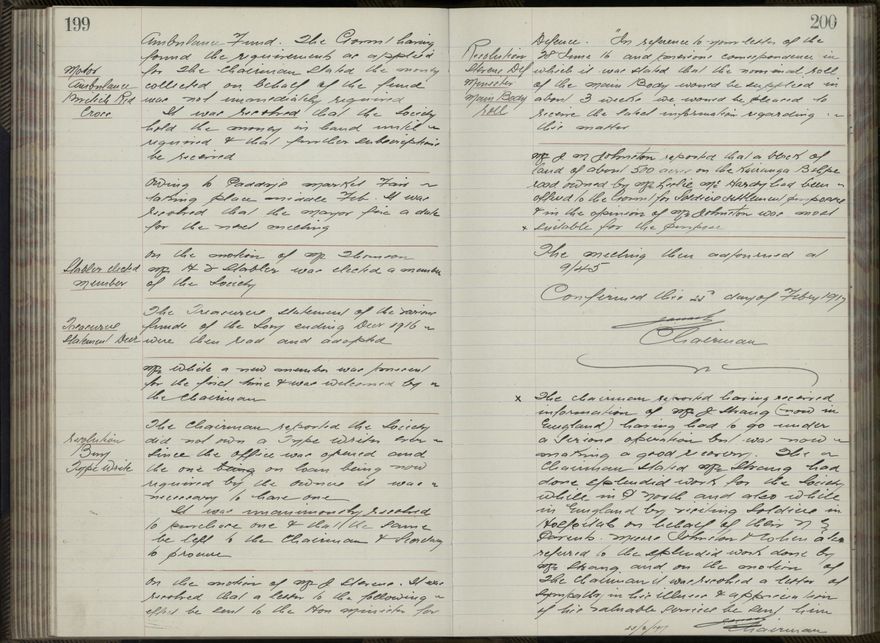 199
Ambulance Fund. The Com'l having
found the requirements as applied
for The Chairman stated the money
collected on behalf of the fund
was not immediately required
Motor
Ambulance
British Red
Cross
It was resolved that the Society
hold the money in hand until
required & that further subscriptions
be received
Owing to Paddy's Market Fair
taking place middle Feb. It was
resolved that the mayor fix a date
for the next meeting
Stabler elected
member
On the motion of Mr Thomson
Mr H J Stabler was elected a member
of the Society
Treasurers
Statement Decr
The Treasurers statement of the various
funds of the Socy ending Decr 1916
were then read and adopted
Mr White a new member was present
for the first time & was welcomed by
the Chairman
resolution
Buy
Type Write
The Chairman reported the Society
did not own a Type Writer ever
since the office was opened and
the one being on loan being now
required by the owners it was
necessary to have one
It was unanimously resolved
to purchase one & that the same
be left to the Chairman & Secretary
to procure
On the motion of Mr J Stevens. It was
resolved that a letter to the following
effect be sent to the Hon Minister for
200
Resolution
Stevens Def
Minister
Main Body
roll
Defence. "In reference to your letter of the
June 16 and previous correspondence in
which it was stated that the nominal roll
of the Main Body would be supplied in
about 3 weeks we would be pleased to
receive the latest information regarding
this matter
Mr J M Johnston reported that a block of
land of about 500 acres on the
road owned by Mr Leslie Mc Hardy had been
offered to the Com'l for Soldiers Settlement purposes
& in the opinion of Mr Johnston was most
x suitable for the purpose
The meeting then adjourned at
9/45
Confirmed this day of Febry 1917
Chairman
x The Chairman reported having received
information of Mr J Strang (now in
England) having had to go under
a serious operation but was now
making a good recovery. The
Chairman stated Mr Strang had
done splendid work for the Society
while in P North and also while
in England by visiting Soldiers in
Hospitals on behalf of their N Z
Parents. Messrs Johnston & Cohen also
referred to the splendid work done by
Mr Strang and on the motion of
The Chairman it was resolved a letter of
sympathy in his illness & appreciation
of his valuable services be sent him
Chairman